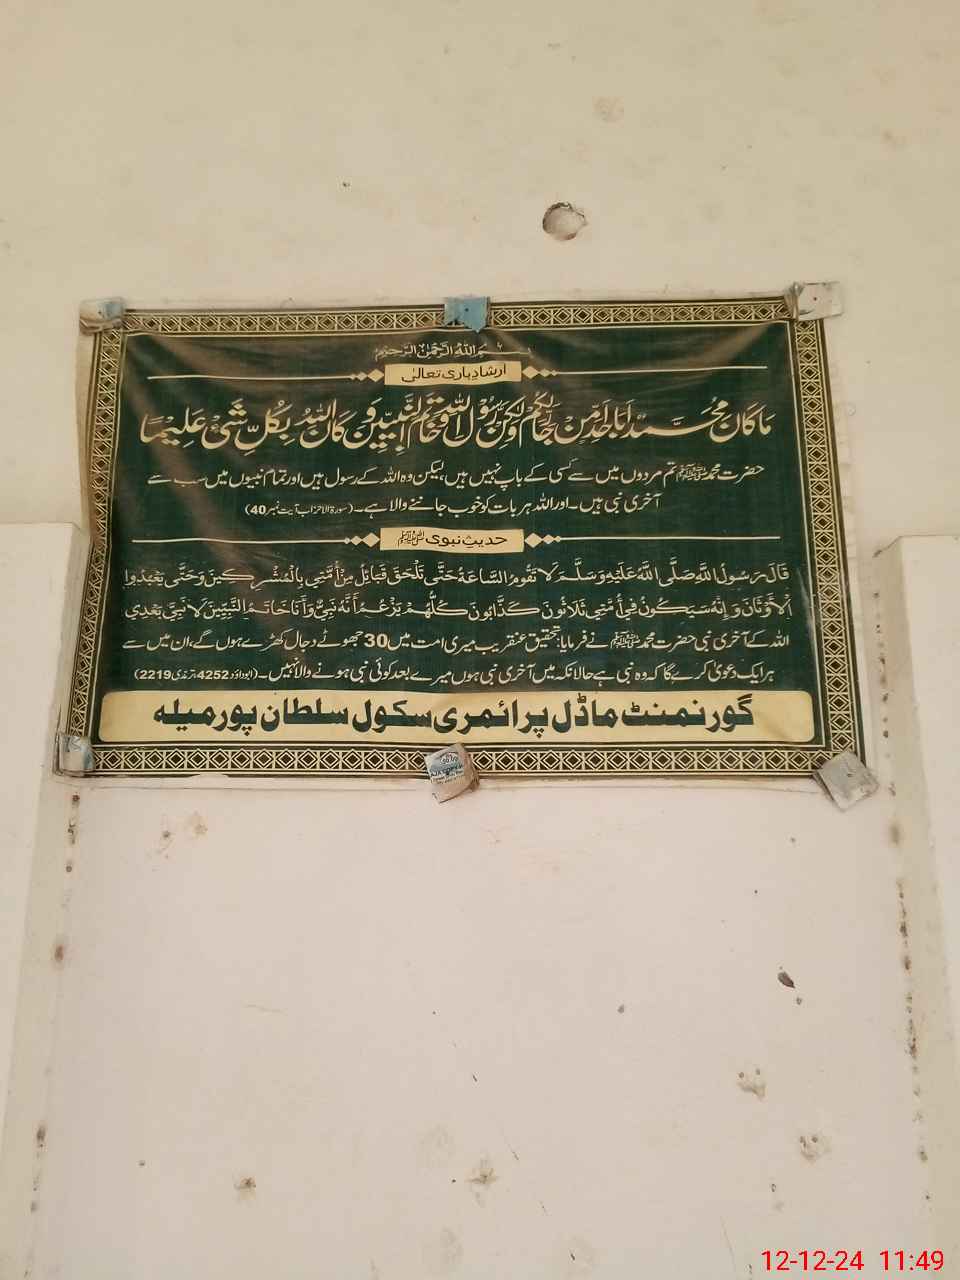 بسم الله الرحمن الرحیم
ارشادِ باری تعالیٰ
مَا كَانَ مُحَمَّدٌ اَبَآ اَحَدٍ مِّنْ رِّجَالِكُمْ وَلٰكِنْ رَّسُوْلَ اللّٰهِ وَخَاتَمَ النَّبِيّٖنَ وَكَانَ اللّٰهُ بِكُلِّ شَیْءٍ عَلِيْمًا
حضرت محمد ﷺ تم مردوں میں سے کسی کے باپ نہیں ہیں، لیکن وہ اللہ کے رسول ہیں اور تمام نبیوں میں سب سے
آخری نبی ہیں۔ اور اللہ ہر بات کو خوب جاننے والا ہے۔ (سورۃ الاحزاب آیت نمبر 40)
حدیثِ نبوی ﷺ
قَالَ رَسُوْلُ اللّٰهِ صَلَّی اللّٰهُ عَلَيْهِ وَسَلَّمَ لَا تَقُومُ السَّاعَةُ حَتَّى تَلْحَقَ قَبَائِلُ مِنْ أُمَّتِي بِالْمُشْرِكِينَ وَحَتَّى يَعْبُدُوا
الْأَوْثَانَ وَإِنَّهُ سَيَكُونُ فِي أُمَّتِي ثَلَاثُونَ كَذَّابُونَ كُلُّهُمْ يَزْعُمُ أَنَّهُ نَبِيٌّ وَأَنَا خَاتَمُ النَّبِيِّينَ لَا نَبِيَّ بَعْدِي
اللہ کے آخری نبی حضرت محمد ﷺ نے فرمایا: تحقیق عنقریب میری امت میں 30 جھوٹے دجال کھڑے ہوں گے، ان میں سے
ہر ایک دعویٰ کرے گا کہ وہ نبی ہے حالانکہ میں آخری نبی ہوں میرے بعد کوئی نبی ہونے والا نہیں۔ (ابوداؤد 4252، ترمذی 2219)
گورنمنٹ ماڈل پرائمری سکول سلطان پور میلہ
12-12-24 11:49